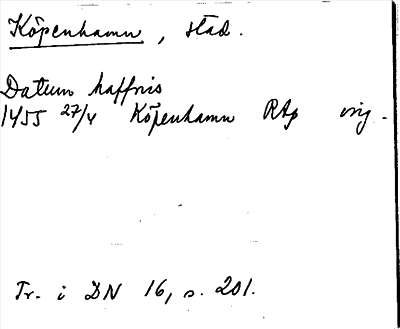 Köpenhamn, stad.
Datum haffnis
1455 27/4 Köpenhamn RAp orig.
Tr. i DN 16, s. 201.